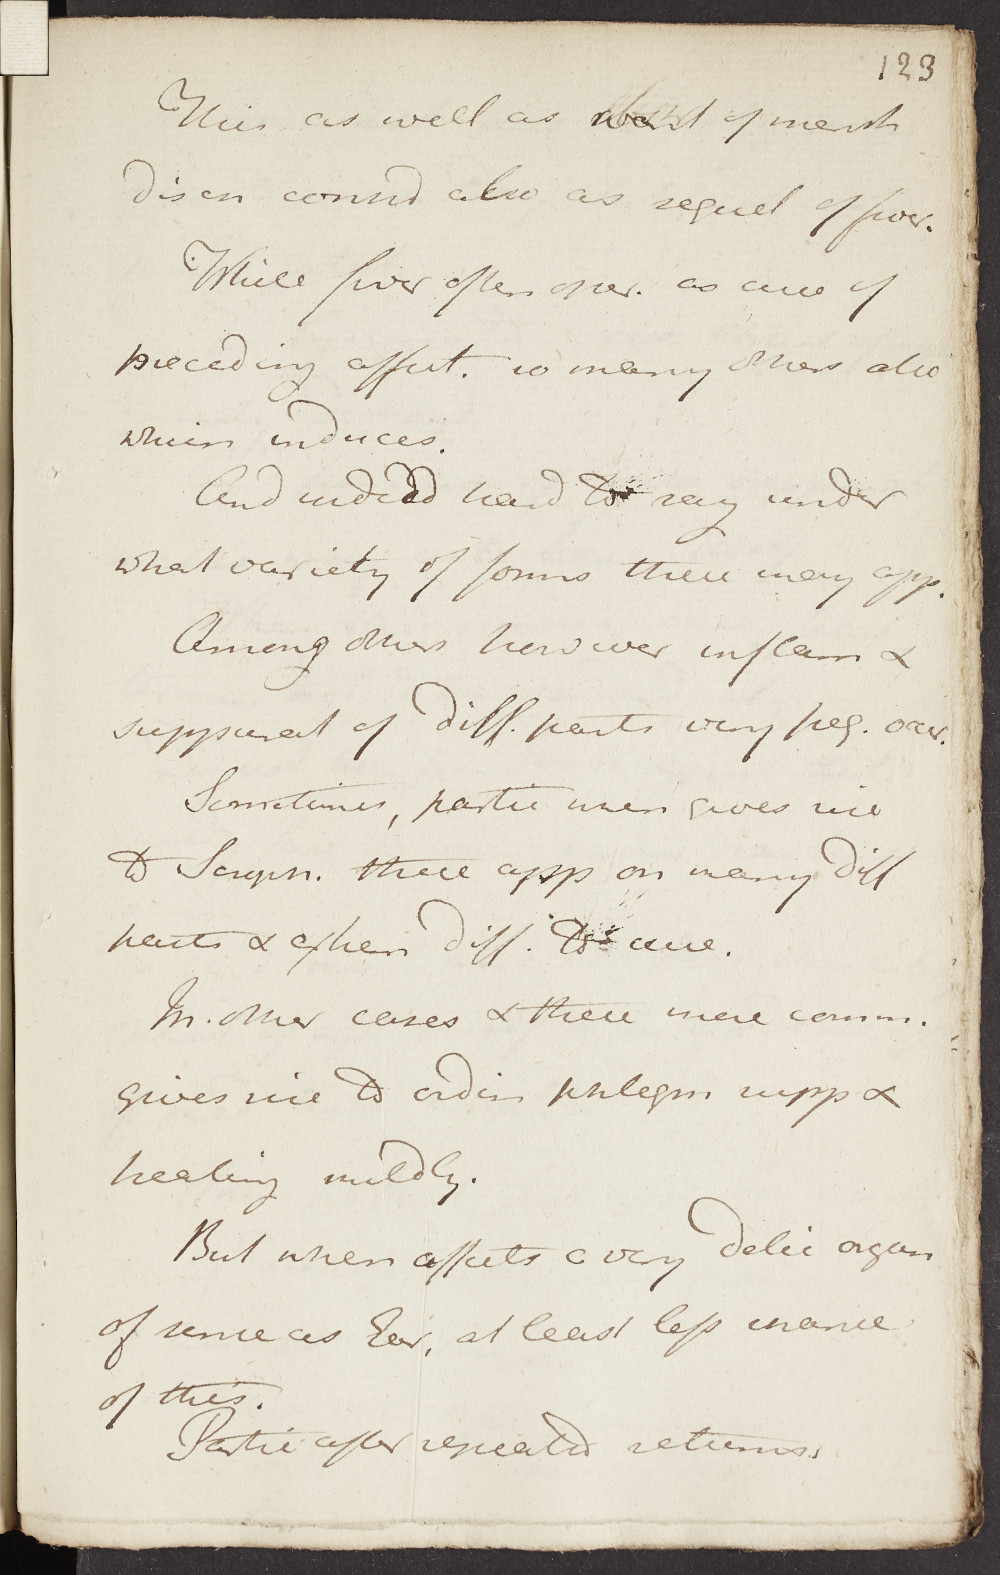 123
This as well as want of menst
disch consid also as sequel of fever.
While fever often oper. as cure of
preceding affect. so many others also
which induces.
And indeed hard to say under
what variety of forms these may app.
Among others however inflam &
suppurat of diff. parts very freq. occur.
Sometimes, partic when gives rise
to Eryn. these app on many diff
parts & often diff. to cure.
In other cases & these more comm.
gives rise to ordin phlegm supp &
healing mildly.
But when affects a very delic organ
of sense as Ear, at least less chance
of this.
Partic after repeated returns.